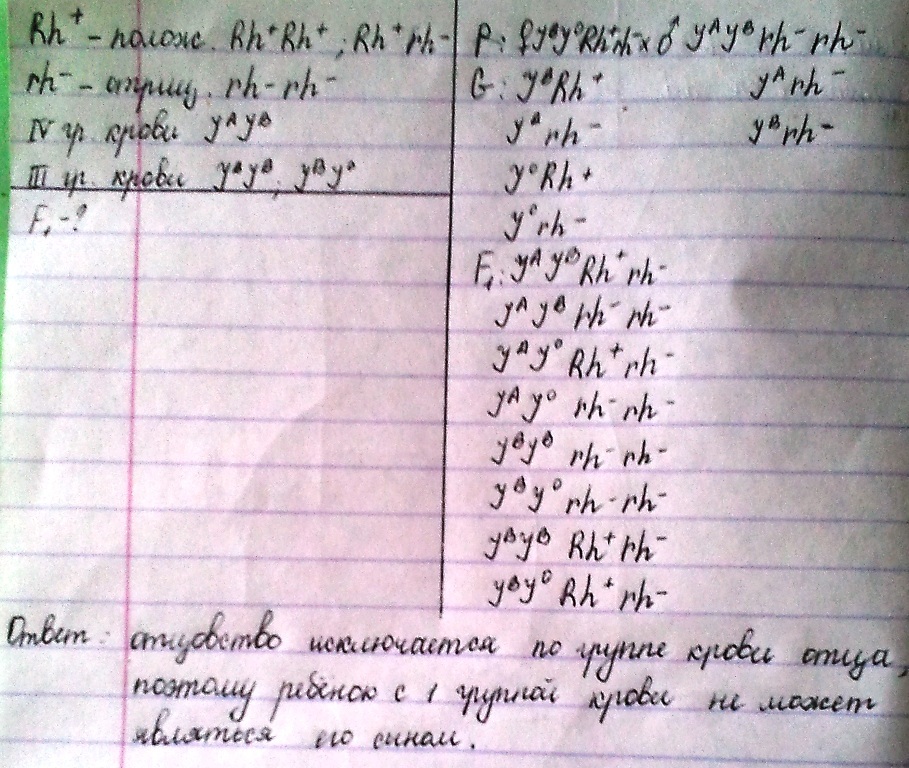 Rh⁺ – полож. Rh⁺Rh⁺; Rh⁺rh⁻
rh⁻ – отриц. rh⁻rh⁻
IV гр. крови УᴬУᴮ
III гр. крови УᴮУᴮ; УᴮУ⁰
F₁ -?
P: ♀УᴮУ⁰Rh⁺rh⁻ × ♂ УᴬУᴮrh⁻rh⁻
G: УᴮRh⁺ Уᴬrh⁻
Уᴮrh⁻ Уᴮrh⁻
У⁰Rh⁺
У⁰rh⁻
F₁: УᴬУᴮRh⁺rh⁻
УᴬУᴮ rh⁻rh⁻
УᴬУ⁰ Rh⁺rh⁻
УᴬУ⁰ rh⁻rh⁻
УᴮУᴮ rh⁻rh⁻
УᴮУ⁰ rh⁻rh⁻
УᴮУᴮ Rh⁺rh⁻
УᴮУ⁰ Rh⁺rh⁻
Ответ: отцовство исключается по группе крови отца,
поэтому ребёнок с 1 группой крови не может
являться его сином.